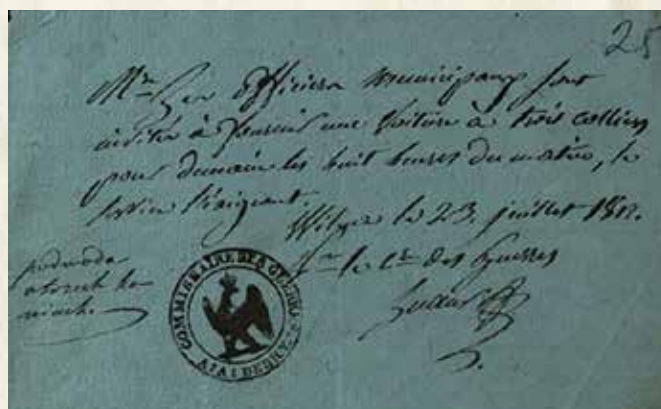 25
Mrs les Officiers municipaux sont
invités à fournir une voiture à trois colliers
pour demain les huit heures du matin, le
service l'exigeant.
Wilna le 23. juillet 1812.
Pr le Cre des Guerres
podwoda
o trzech ko
niach.
COMMISSAIRE DES GUERRES